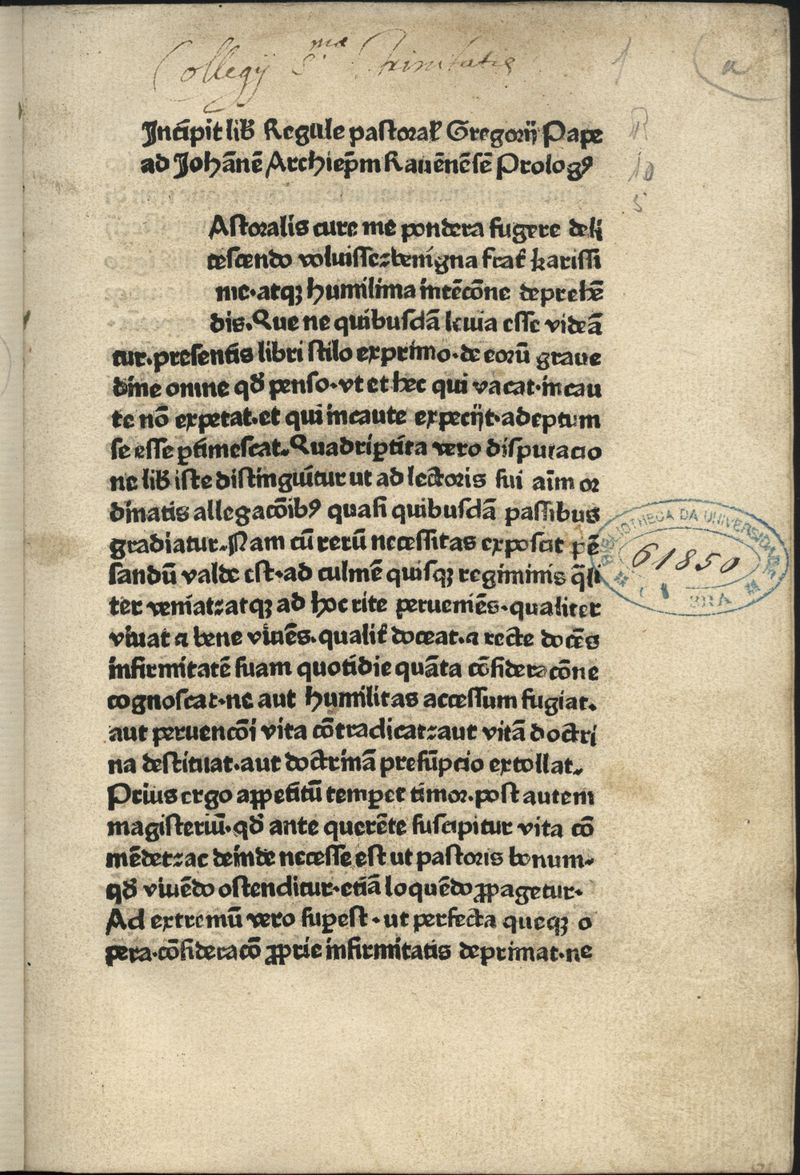 Collegij S.mæ Trinitatis
a
R
10
5
Incipit lib̄ Regule pastoral̄ Gregorij Pape
ad Johānē Archiep̄m Rauēnēsē Prologꝰ
Astoralis cure me pondera fugere deli
tescendo voluisse: benigna frat̄ karissi
me·atqꝫ humilima intēcōne deprehē
dis. Que ne quibusdā leuia esse videā
tur·presentis libri stilo exprimo·de eorū graue
dine omne qd̄ penso·vt et hec qui vacat·incau
te nō expetat·et qui incaute expecijt·adeptum
se esse ꝑtimescat. Quadriꝑtita vero disputacio
ne lib̄ iste distinguit̄ur ut ad lectoris sui aīm or
dinatis allegacōibꝰ quasi quibusdā passibus
gradiatur. Nam cū rerū necessitas exposcit pē
sandū valde est·ad culmē quisqꝫ regiminis q̄li
ter veniat: atqꝫ ad hoc rite perueniēs·qualiter
viuat a bene viuēs·qualit̄ doceat·a recte docēs
infirmitatē suam quotidie quāta cōsideracōne
cognoscat·ne aut humilitas accessum fugiat.
aut peruencōi vita cōtradicat: aut vitā doctri
na destituat·aut doctrinā presūpcio extollat.
Prius ergo appetitū temꝑet timor·post autem
magisteriū·qd̄ ante querēte suscipitur vita cō
mēdet: ac deinde necesse est ut pastoris bonum·
qd̄ viuēdo ostenditur·etiā loquēdo ꝓpagetur·
Ad extremū vero suꝑest·ut perfecta queqꝫ o
pera·cōsideracō ꝓprie infirmitatis deprimat·ne
BIBLIOTHECA DA UNIVERSIDADE
61850